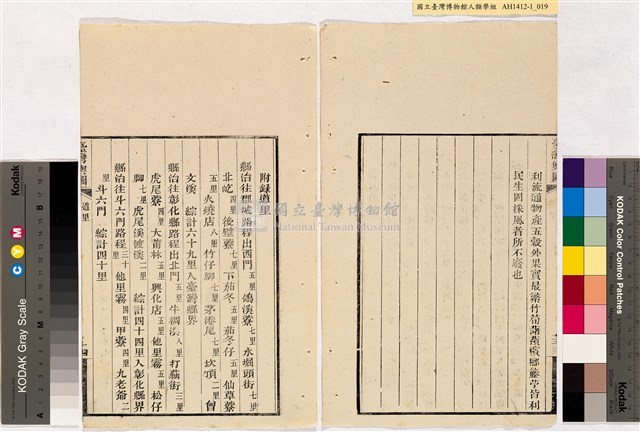 國立臺灣博物館人類學組 AH1412-1_019
利流通物產五穀外果實最
竹筍
皆利
民生固採風者所不廢也
附錄道里
縣治往郡城路程出西門 五里 鴿溪寮 七里 水堀頭街 七里
北屹 四里 後壁寮 七里 下茄冬 五里 茄冬仔 五里 仙草寮
五里 火燒店 八里 竹仔腳 七里 茅港尾 七里 坎頂 二里 曾
文溪 綜計六十九里入臺灣縣界
縣治往彰化縣路程出北門 五里 牛稠溪 八里 打貓街 三里
虎尾寮 四里 大莆林 五里 興化店 五里 他里霧 五里 松仔
腳 七里 虎尾溪渡溪 二里 綜計四十四里入彰化縣界
縣治往斗六門路程 三十里 他里霧 四里 甲寮 四里 九老爺 二
里 斗六門 綜計四十里
臺灣輿圖
道里
國立臺灣博物館
National Taiwan Museum
Kodak
KODAK Gray Scale
C Y M
A
M
B
Kodak
KODAK Color Control Patches